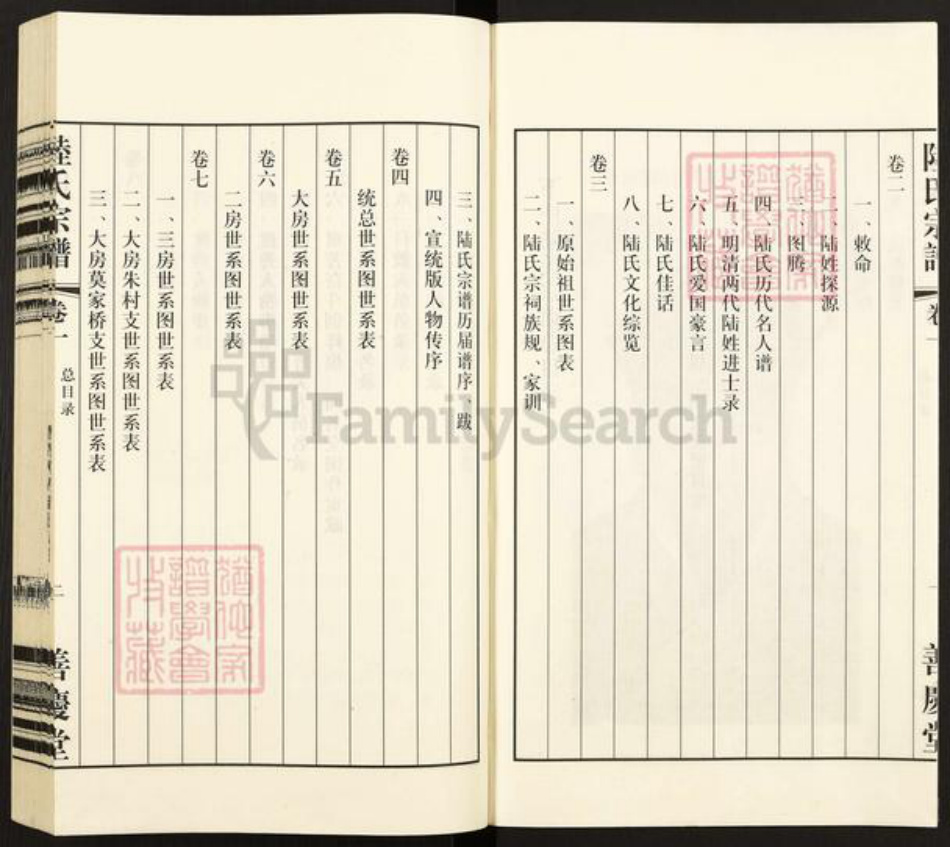 陆氏宗谱 卷一
善慶堂
卷二
一、敕命
二、陆姓探源
三、图腾
四、陆氏历代名人谱
五、明清两代陆姓进士录
六、陆氏爱国豪言
七、陆氏佳话
八、陆氏文化综览
卷三
一、原始祖世系图表
二、陆氏宗祠族规、家训
三、陆氏宗谱历届谱序、跋
四、宣统版人物传序
卷四
统总世系图世系表
卷五
大房世系图世系表
卷六
二房世系图世系表
卷七
一、三房世系图世系表
二、大房朱村支世系图世系表
三、大房莫家桥支世系图世系表
陸氏宗譜 卷一 总目录 二 善慶堂
FamilySearch
譜學會
收藏